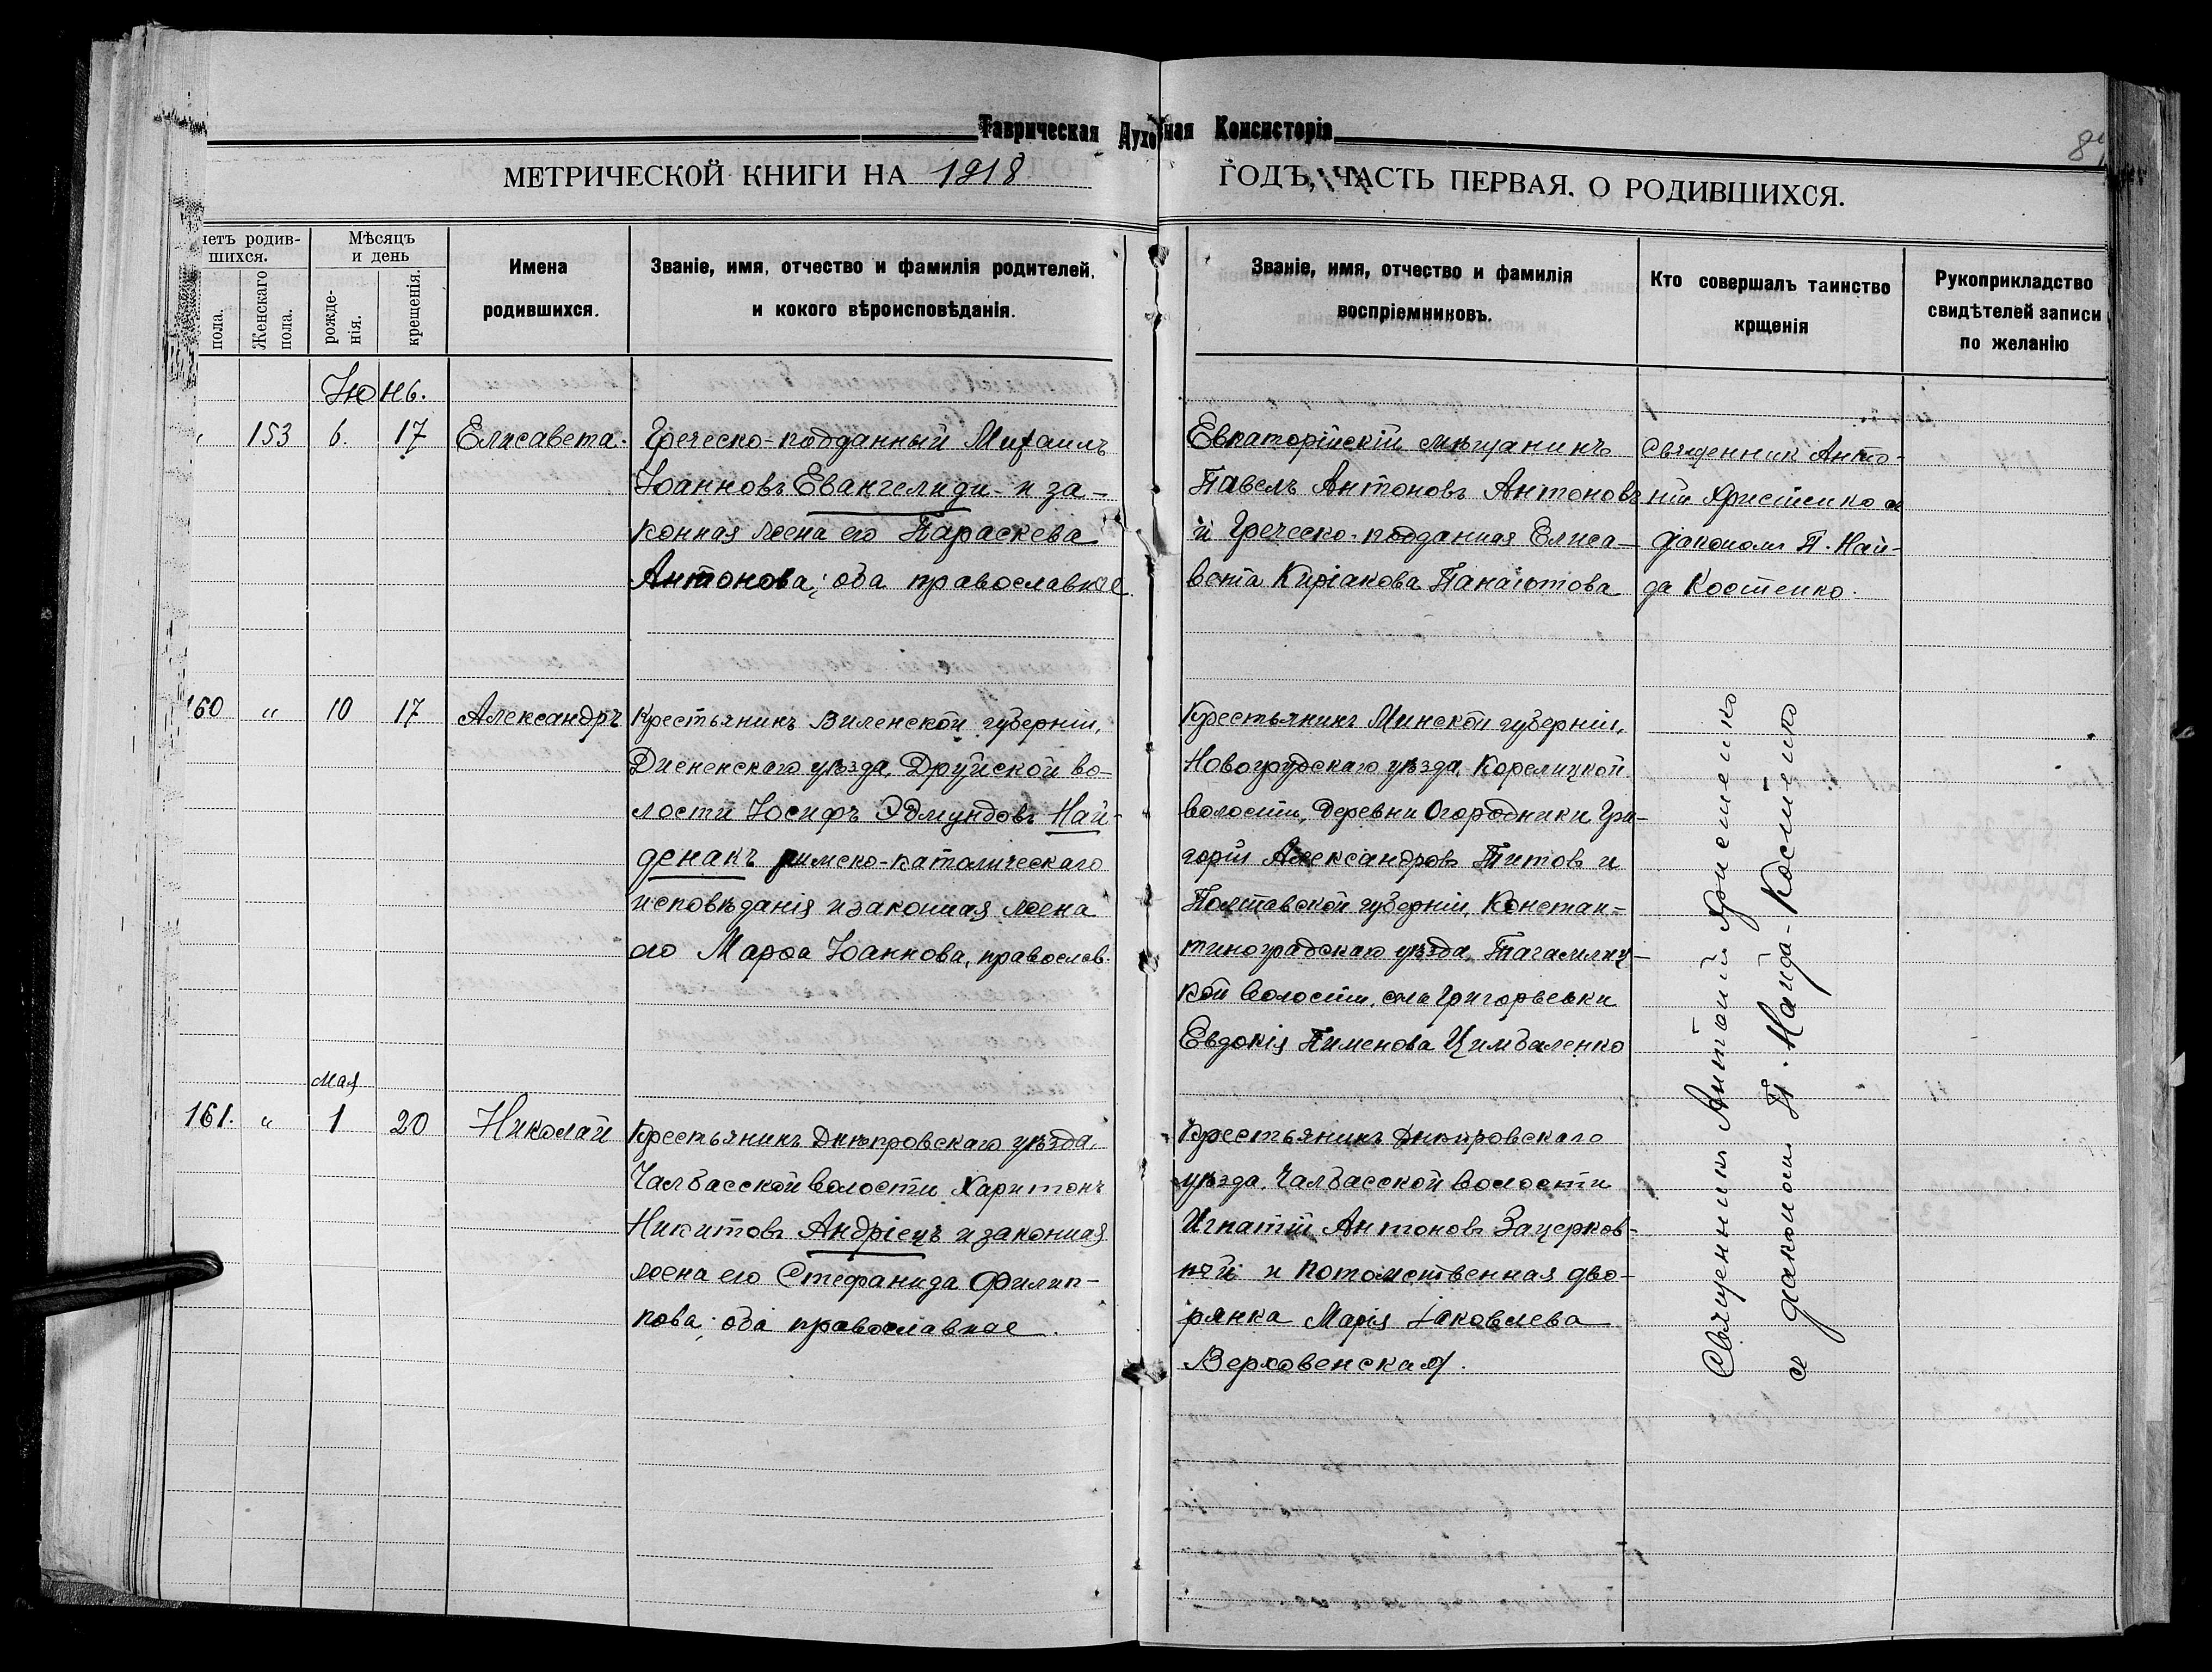 Таврическая Духовная Консисторія
МЕТРИЧЕСКОЙ КНИГИ НА 1918 ГОДЪ, ЧАСТЬ ПЕРВАЯ. О РОДИВШИХСЯ.
четъ родив-
шихся.
пола.
Женскаго
пола.
Мѣсяцъ
и день
рожде-
нія.
крещенія.
Имена
родившихся.
Званіе, имя, отчество и фамилія родителей,
и кокого вѣроисповѣданія.
Званіе, имя, отчество и фамилія
воспріемниковъ.
Кто совершалъ таинство
крщенія
Рукоприкладство
свидѣтелей записи
по желанію
Июнь.
153 6. 17 Елисавета.
Греческо-подданный Михаилъ
Іоанновъ Евангелиди и за-
конная жена его Параскева
Антонова; оба православные.
Евпаторійскій мѣщанинъ
Павелъ Антоновъ Антоновъ
и Греческо-подданная Елиса-
вета Киріакова Панаіотова
Священник Анто-
ній Христенко съ
діакономъ П. Най-
да Костенко.
160 " 10 17 Александръ
Крестьянинъ Виленской губерніи,
Дисненскаго уѣзда, Друйской во-
лости Іосифъ Эдмундовъ Най-
денакъ римско-католическаго
исповѣданія и законная жена
его Марѳа Іоаннова, православ.
Крестьянинъ Минской губерніи,
Новогрудскаго уѣзда, Корелицкой
волости, деревни Огородники Гри-
горій Александровъ Титов и
Полтавской губерніи, Констан-
тиноградскаго уѣзда, Тагамлиц-
кой волости, села Григорьевки
Евдокія Пименова Цимбаленко
Священникъ Антоній Христенко
съ діакономъ П. Найда-Костенко
мая
161. " 1 20 Николай
Крестьянинъ Днѣпровскаго уѣзда,
Чалбасской волости Харитонъ
Никитовъ Андріецъ и законная
жена его Стефанида Филип-
пова; оба православные.
Крестьянинъ Днѣпровскаго
уѣзда, Чалбасской волости
Игнатій Антоновъ Зацерков-
ный и потомственная дво-
рянка Марія Іаковлева
Верховенская.